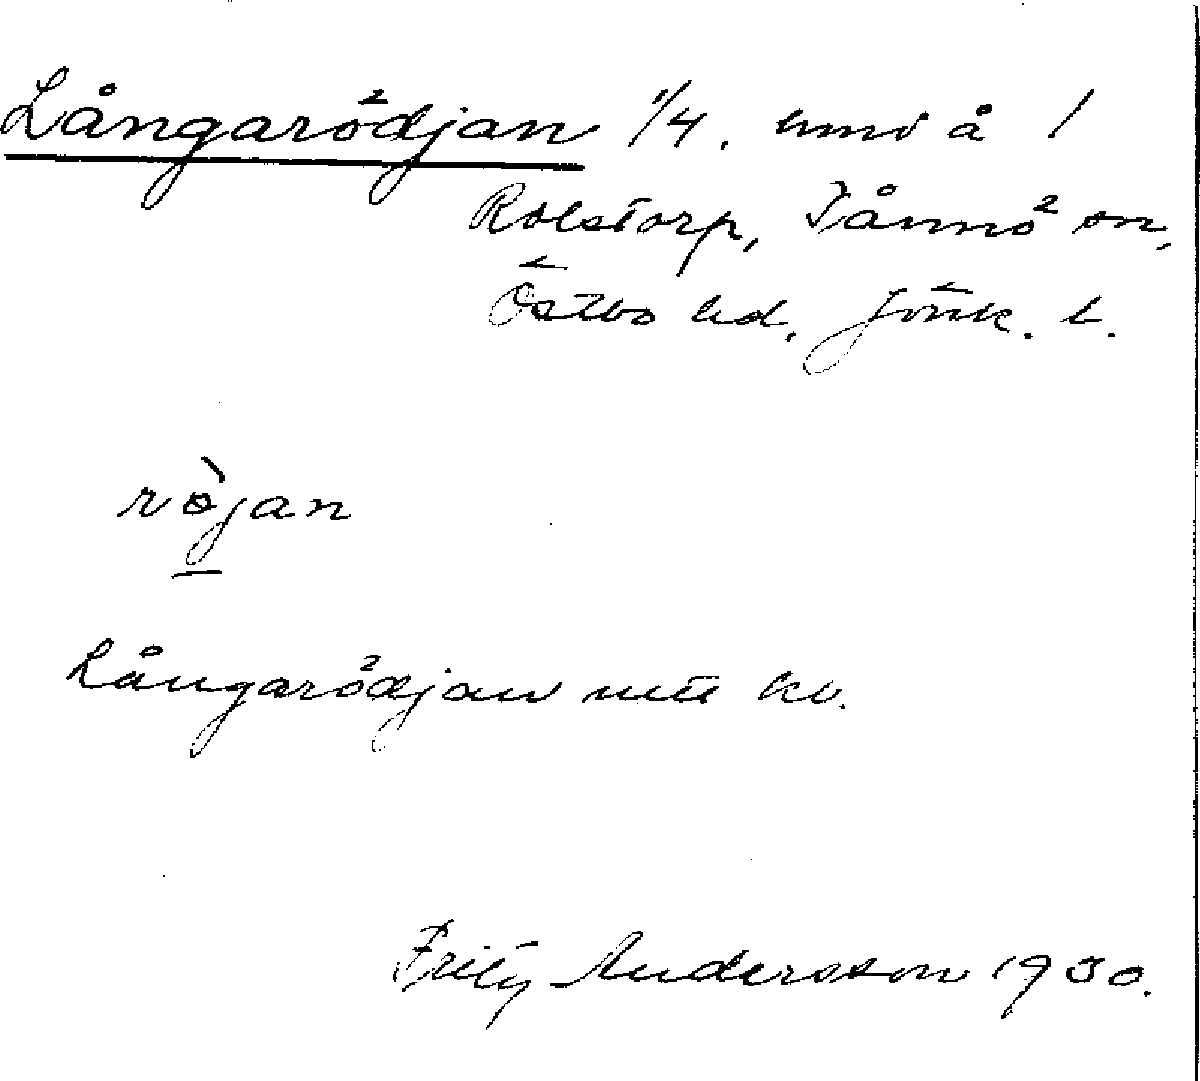 Långarödjan 1/4. hmv å 1
Rolstorp, Tånnö sn,
Östbo hd, Jönk. l.
röjan
Långarödjan utt kv.
Fritz Andersson 1930.